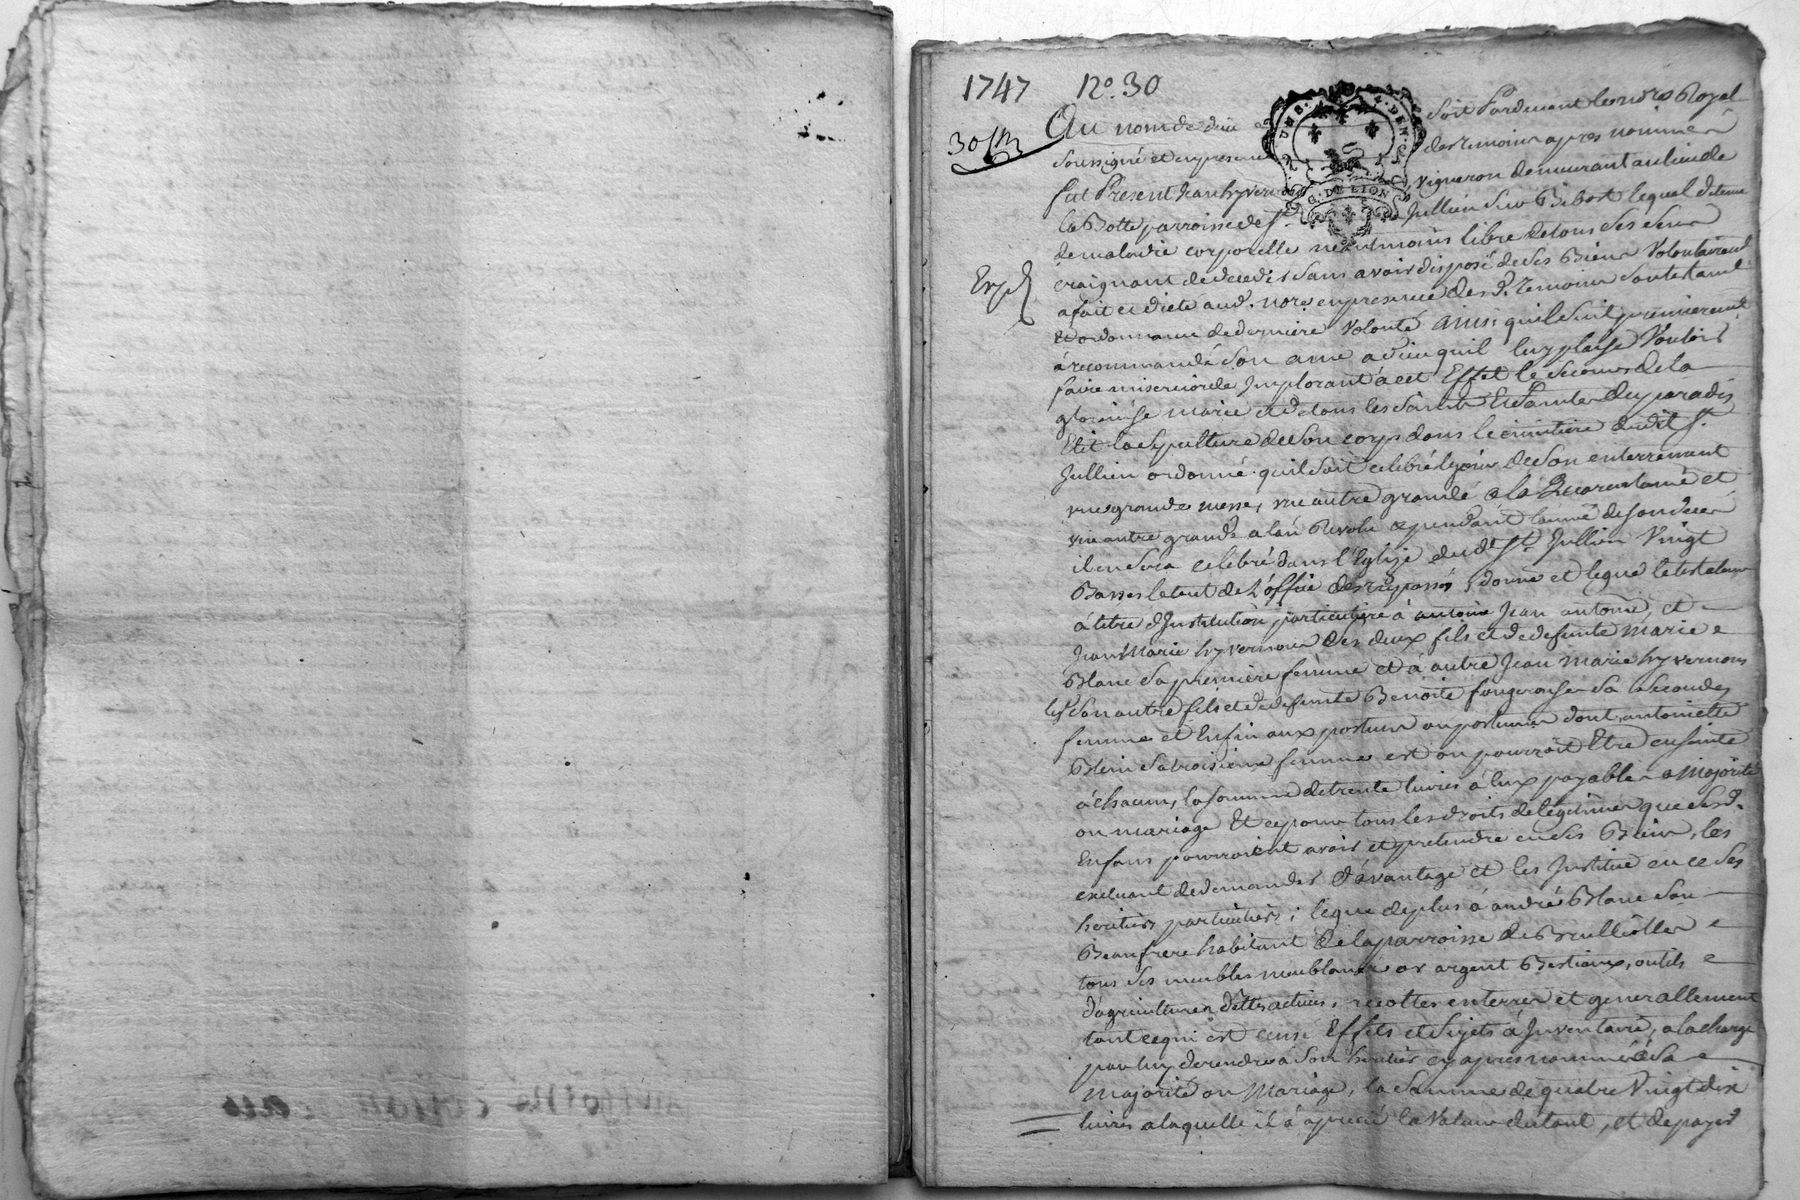 1747 N.o 30
Au nom de dieu soit Pardevant le no.re Royal
soussigné et en presence des temoins apres nommés
fut Present Jean hyvernon vigneron demeurant au lieu de
la Botte parroisse de St. Jullien sur Bibost lequel detenu
de maladie corporelle neantmoins libre de tous ses sens
craignant de deceder sans avoir disposé de ses Biens Volontairemt.
Expd.
a fait et dicté aud. no.re en presence des d. temoins son testamt.
et ordonnance de derniere Volonté ainsi quil suit premieremt.
à recommandé son ame a dieu quil luy plaise Vouloir
faire misericorde Implorant à cet Effet le secours de la
glorieuse marie et de tous les saints et saintes du paradis
Elit la sepulture de son corps dans le cimitiere dudit St.
Jullien ordonné quil soit celebré le jour de son enterrement
une grande messe, une autre grande a la Quarantaine et
une autre grande a lan Revolu et pendant lannée de son deces
il en sera celebré dans l'Eglise dud. St. Jullien Vingt
Basses le tout de L'office des trepassés, donne et legue le testateur
à titre d'Institution particuliere à antoine Jean antoine, et
Jean Marie hyvernon ses deux fils et de defunte Marie
Blanc sa premiere femme et à autre Jean marie hyvernon
son autre fils et de defunte Benoite fougerouse sa seconde
femme et Enfin aux postume ou postumes dont antoinette
Blein sa troisieme femme est ou pourroit Etre enceinte
à chacun, la somme de trente livres à eux payables a Majorité
ou mariage Et ce pour tous les droits de legitimes que ses d.
Enfans pourroient avoir et pretendre en ses Biens, les
excluant de demander d'avantage et les Institue en ce ses
heritiers particuliers; legue de plus à andré Blanc son
Beaufrere habitant de la parroisse de Brullioles
tous ses meubles meublants or argent Bestiaux, outils
d'agriculture, dettes actives, recoltes en terres et generallement
tout ce qui est censé Effets et sujets à Inventaire, a la charge
par luy de rendre à son heritier cy apres nommé à sa
majorité ou Mariage, la somme de quatre Vingt dix
livres a laquelle il à aprecié la Valeur du tout, et de payer